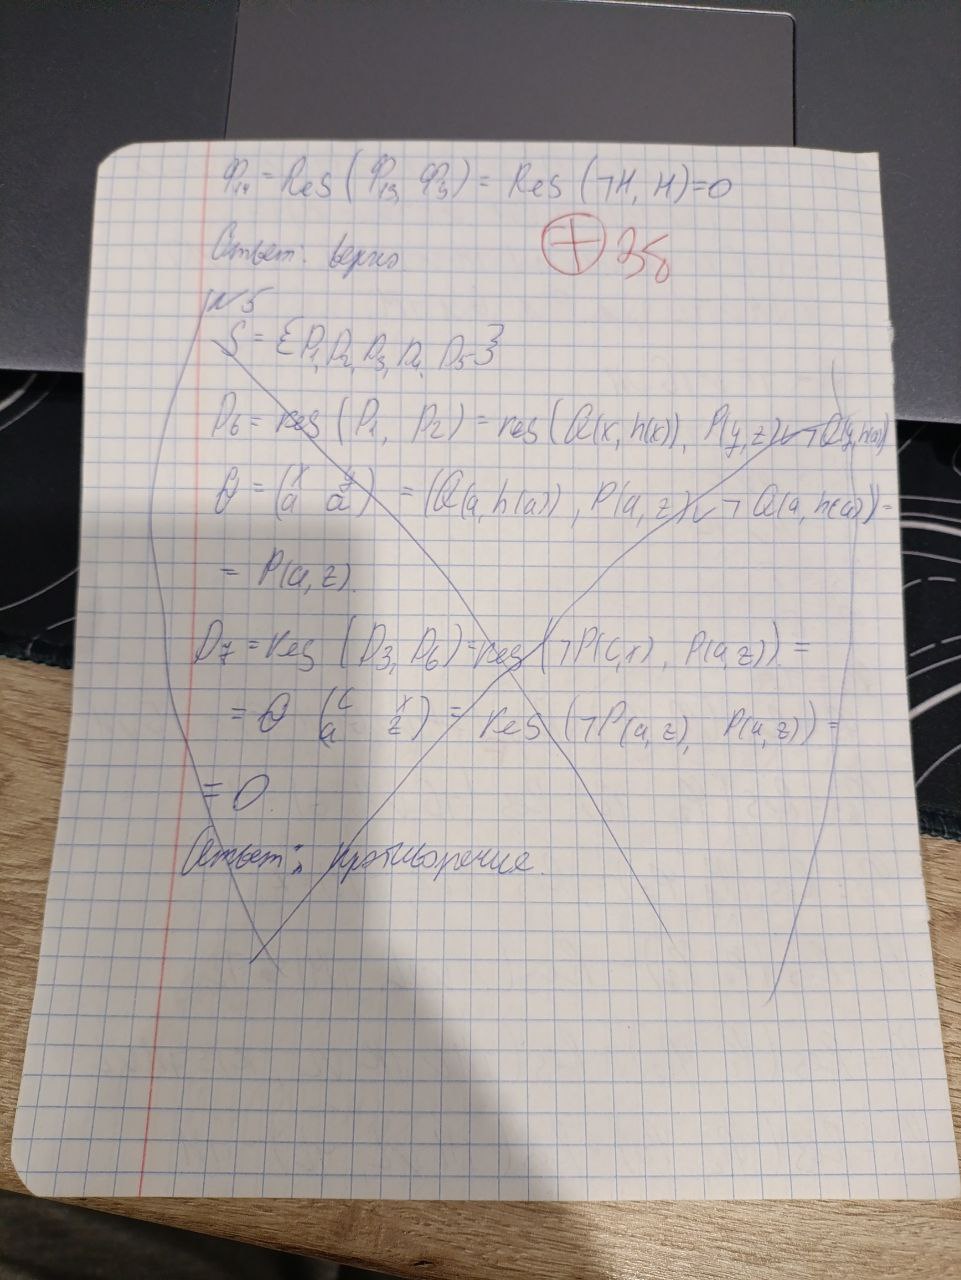 φ₁₄ = Res (φ₁₃, φ₃) = Res (¬H, H) = 0
Ответ: верно.
⊕ 3б
№5
S = {D₁, D₂, D₃, D₄, D₅}
D₆ = res (D₁, D₂) = res (Q(x, h(x)), P(y, z) ∨ ¬Q(y, h(a))
θ = (x y / a a) = (Q(a, h(a)), P(a, z) ∨ ¬Q(a, h(a))) =
= P(a, z).
D₇ = res (D₃, D₆) = res (¬P(c, x), P(a, z)) =
= θ (c x / a z) = res (¬P(a, z), P(a, z)) =
= 0.
Ответ: противоречие.